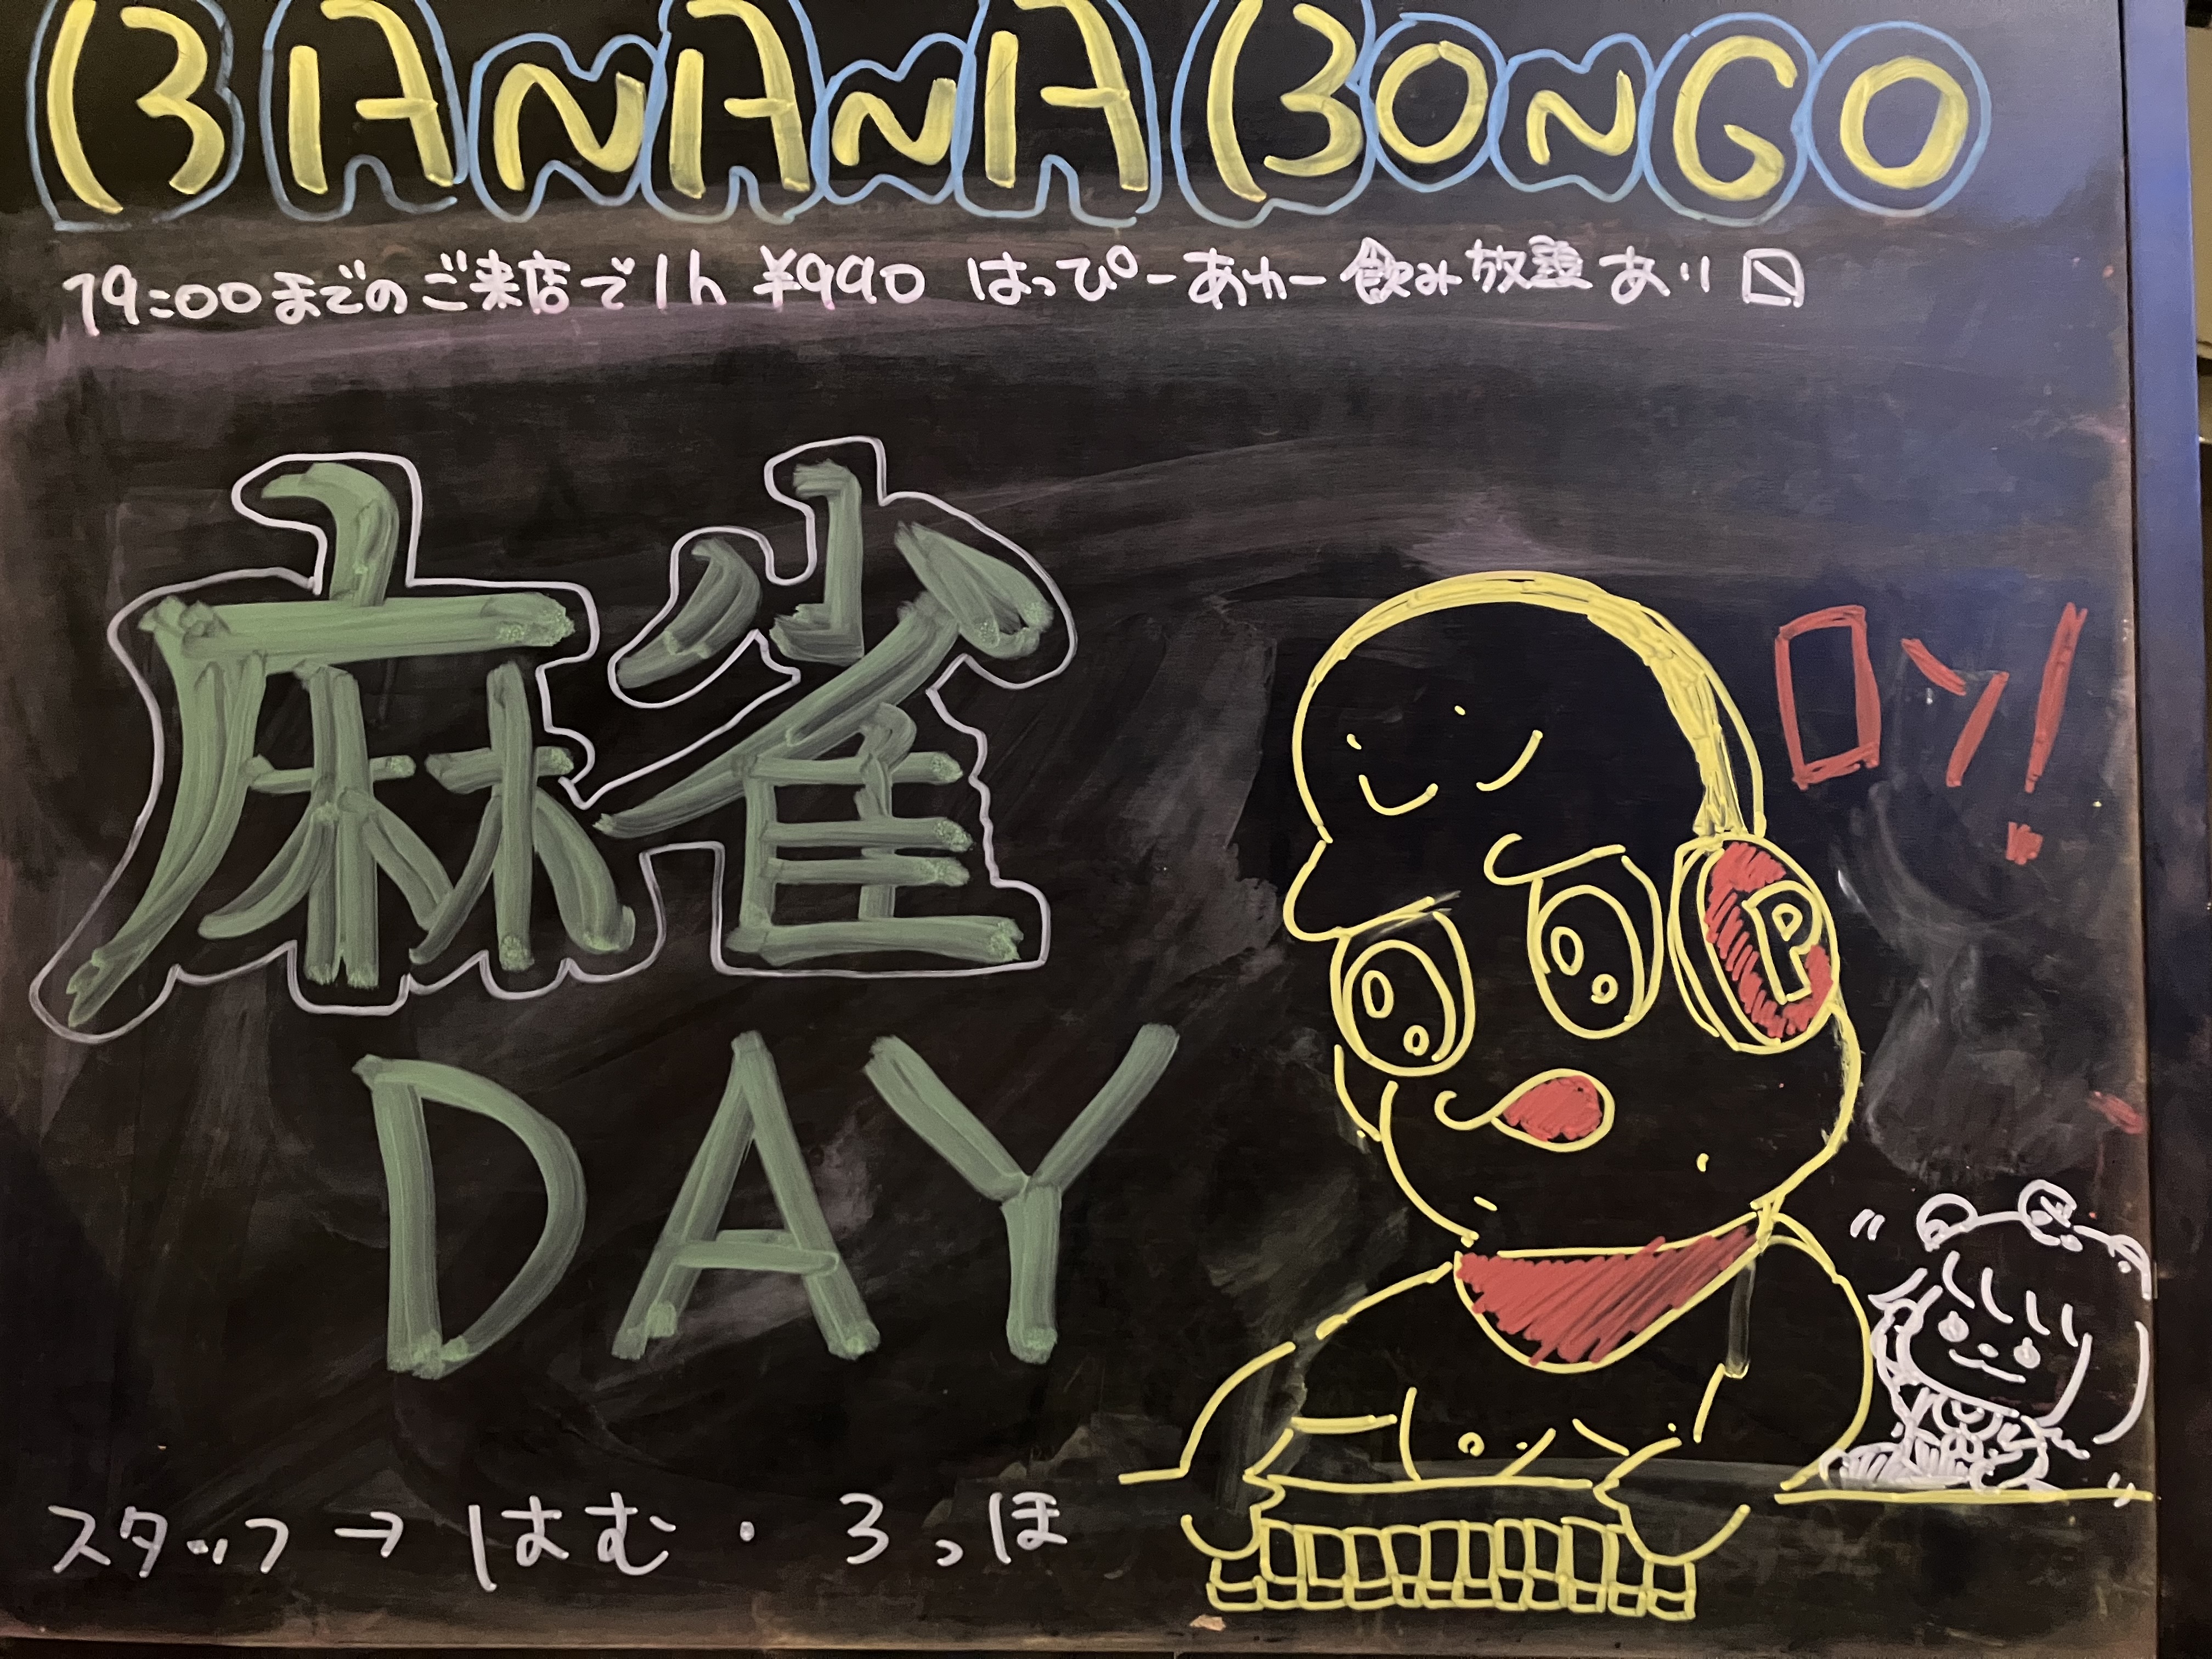 BANANA BONGO
19:00までのご来店で1h ¥990 はっぴーあわー 飲み放題 あり
麻雀
DAY
ロン!
P
スタッフ→はむ・ろっほ